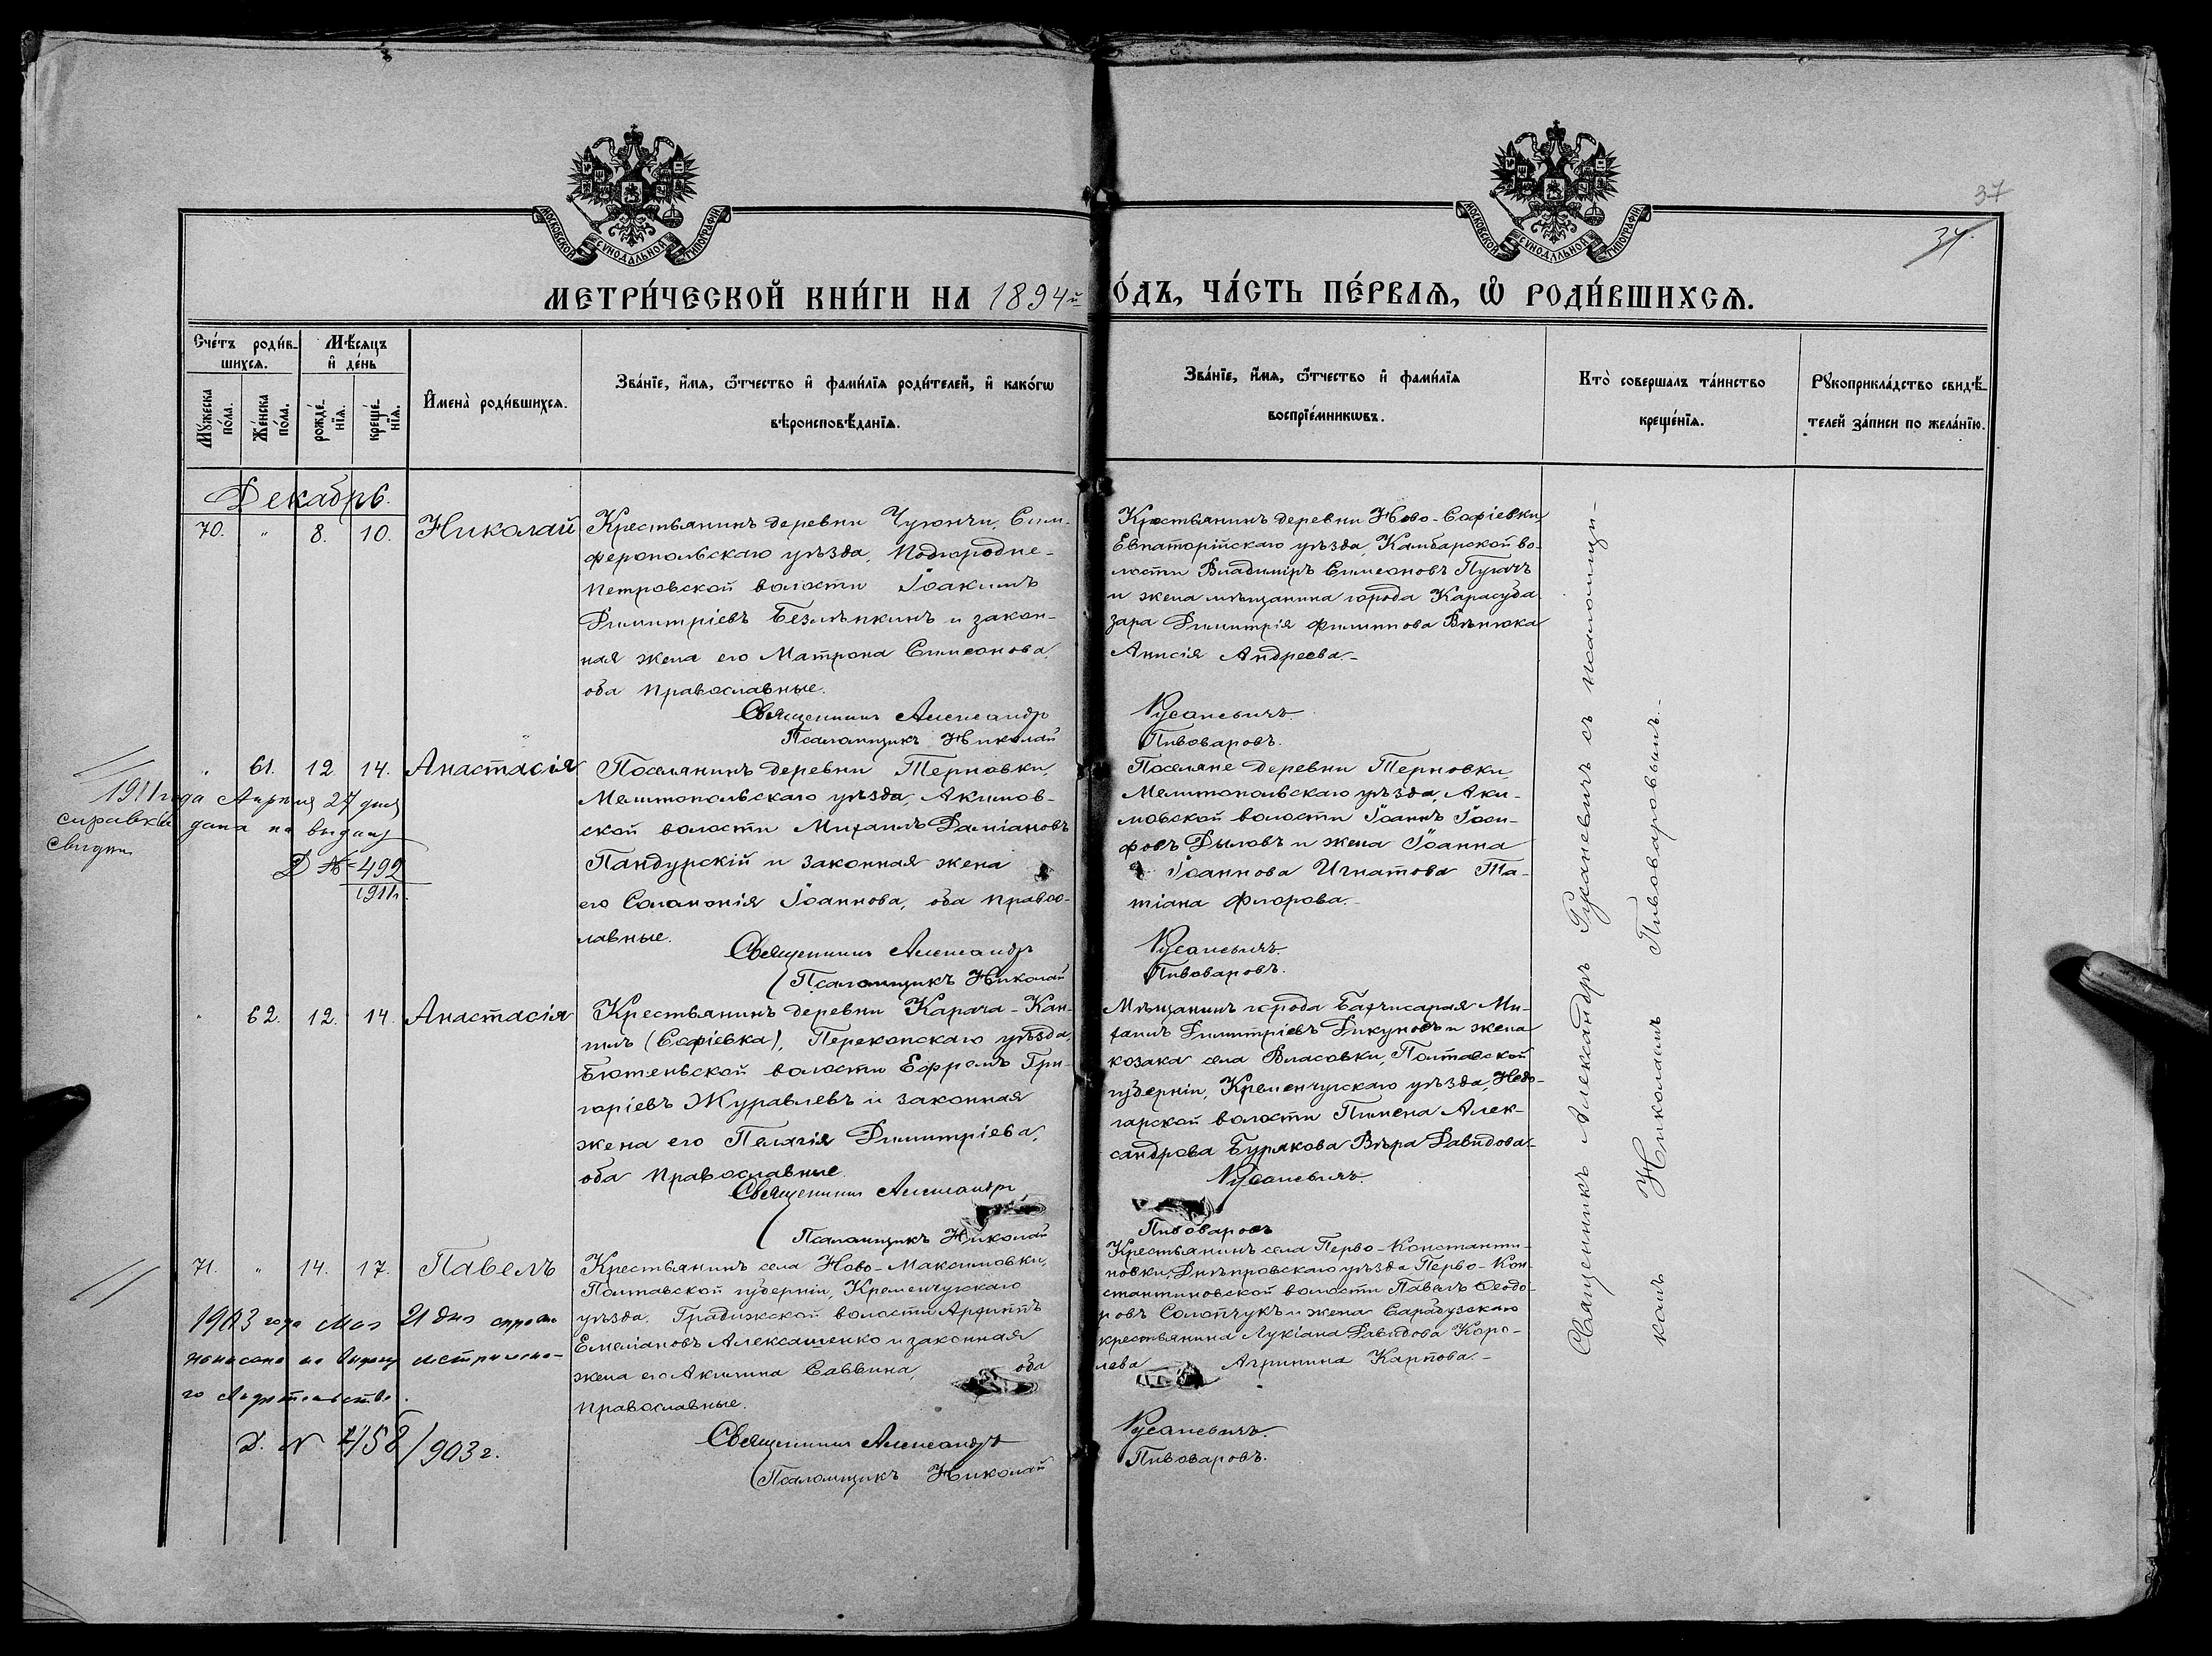 37
34.
МОСКОВСКОЙ СѴНОДАЛЬНОЙ ТИПОГРАФІИ
МОСКОВСКОЙ СѴНОДАЛЬНОЙ ТИПОГРАФІИ
МЕТРИ́ЧЕСКОЙ КНИ́ГИ НА 1894й
О́ДЪ, ЧА́СТЬ ПЕ́РВАѦ, Ѿ РОДИ́ВШИХСѦ.
Сче́тъ роди́в-
шихсѧ.
Мѣ́сяцъ
и҆ де́нь
Мꙋ́жеска по́ла.
Же́нска по́ла.
рожде́нїѧ.
креще́нїѧ.
И҆мена̀ роди́вшихсѧ.
Зва́нїе, и҆́мѧ, ѻ҆́тчество и҆ фами́лїѧ роди́телей, и҆ како́гѡ
вѣроисповѣ́данїѧ.
Зва́нїе, и҆́мѧ, ѻ҆́тчество и҆ фами́лїѧ
воспрїе́мникѡвъ.
Кто̀ соверша́лъ та́инство
креще́нїѧ.
Рꙋкоприкла́дство свидѣ́-
телей за́писи по жела́нїю.
Декабрь.
70. " 8. 10. Николай
Крестьянинъ деревни Чуюнчи, Сим-
феропольскаго уѣзда, Подгородне-
Петровской волости Іоакимъ
Димитріевъ Безлѣпкинъ и закон-
ная жена его Матрона Симеонова,
оба православные.
Священникъ Александръ
Псаломщикъ Николай
Крестьянинъ деревни Ново-Софіевки,
Евпаторійскаго уѣзда, Камбарской во-
лости Владиміръ Симеоновъ Пугачъ
и жена мѣщанина города Карасуба-
зара Димитрія Филиппова Вѣнюка
Анисія Андреева.-
Русаневичъ.
Пивоваровъ.
" 61. 12. 14. Анастасія
Поселянинъ деревни Терновки,
Мелитопольскаго уѣзда, Акимов-
ской волости Михаилъ Даміановъ
Пандурскій и законная жена
его Соломонія Іоаннова, оба право-
лавные.
Священникъ Александръ
Псаломщикъ Николай
Поселяне деревни Терновки,
Мелитопольскаго уѣзда, Аки-
мовской волости Іоаннъ Іоси-
фовъ Дыловъ и жена Іоанна
Іоаннова Игнатова Та-
тіана Флорова.-
Русаневичъ.
Пивоваровъ.
1911 года Апрѣля 27 дня
справка дана на выдачу
свидѣт.
Д № 499
1911г.
" 62. 12. 14. Анастасія
Крестьянинъ деревни Карача-Кан-
гилъ (Софіевка), Перекопскаго уѣзда,
Бютеньской волости Ефремъ Гри-
горіевъ Журавлевъ и законная
жена его Пелагія Димитріева,
оба православные.
Священникъ Александръ
Псаломщикъ Николай
Мѣщанинъ города Бахчисарая Ми-
хаилъ Димитріевъ Дикуновъ и жена
козака села Власовки, Полтавской
губерніи, Кременчугскаго уѣзда, Недо-
гарской волости Пимена Алек-
сандрова Бурякова Вѣра Давидова-
Русаневичъ.
Пивоваровъ
71. " 14. 17. Павелъ
Крестьянинъ села Ново-Максимовки,
Полтавской губерніи, Кременчугскаго
уѣзда, Градижской волости Архиппъ
Емеліановъ Алексашенко и законная
жена его Акилина Саввина, оба
православные.
Священникъ Александръ
Псаломщикъ Николай
Крестьянинъ села Перво-Константи-
новки, Днѣпровскаго уѣзда Перво-Кон-
стантиновской волости Павелъ Ѳеодо-
ровъ Солопчукъ и жена Сарабузскаго
крестьянина Лукіана Давидова Коро-
лева Агрипина Карпова.-
Русаневичъ.
Пивоваровъ.
1903 года Мая 21 дня справка
на выдачу метрическа-
го свидетельства.
Д. N 2/58/903 г.
Священникъ Александръ Русаневичъ съ псаломщи-
комъ Николаемъ Пивоваровымъ.-